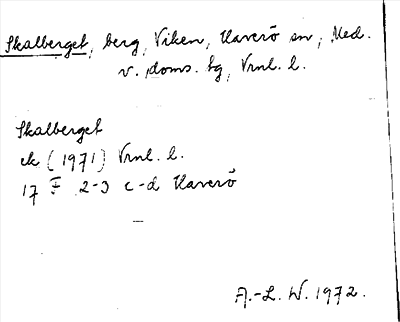 Skalberget, berg, Viken, Haverö sn, Med.
v. doms. tg, Vrnl. l.
Skalberget
ek (1971) Vrnl. l.
17 F 2-3 c-d Haverö
A.-L. W. 1972.